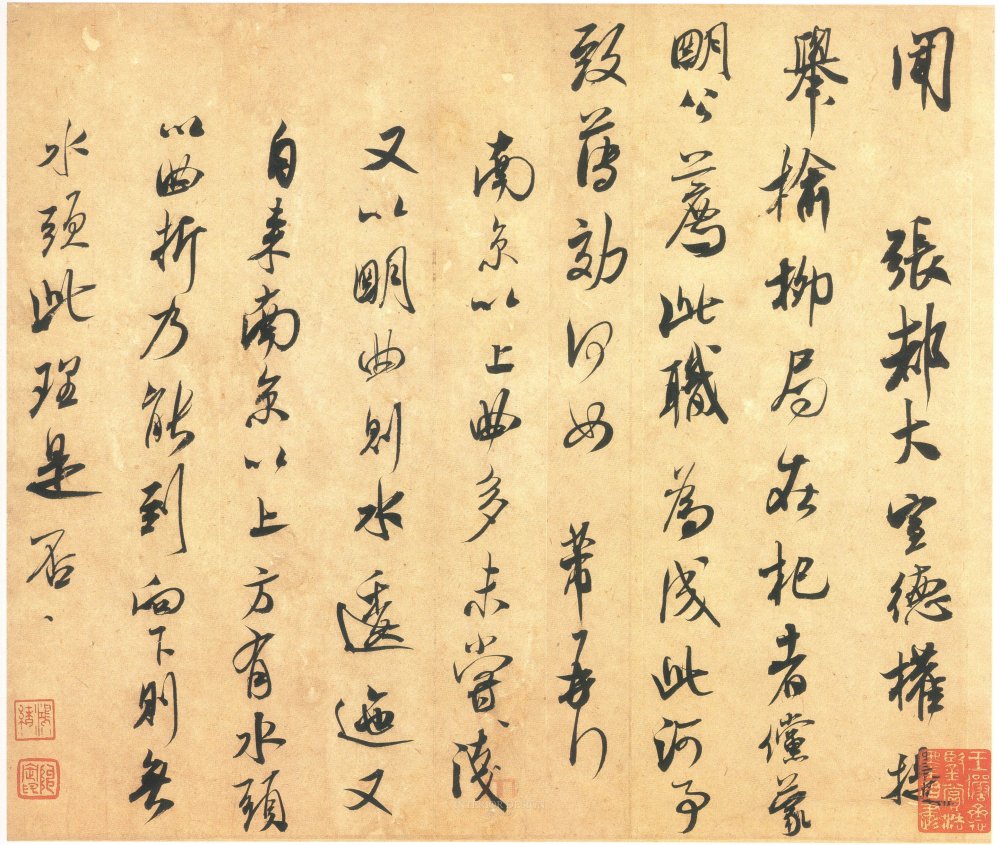 闻　張都大宣德權提
舉榆柳局在杞者儻蒙
明公薦此職為成此河事
致薄效何如　芾再行
南京以上曲多未嘗、淺
又以明曲則水逶迤又
自來南京以上方有水頭
以曲折乃能到向下則無
水頭此理是否、